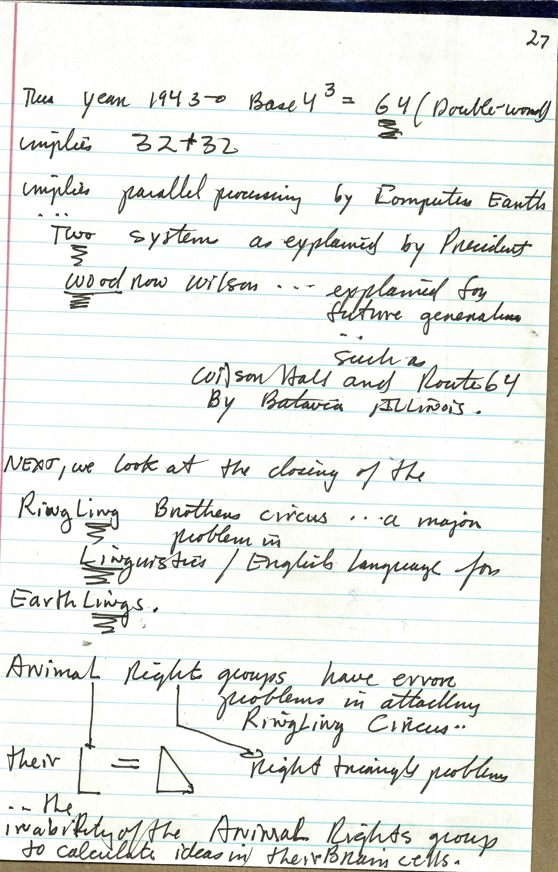 27
This year 1943→ Base 4³ = 64 (Double-word)
implies 32+32
implies parallel processing by Computer Earth
... Two system as explained by President
Woodrow Wilson ... explained for
future generations
... such as
Wilson Hall and Route 64
By Batavia ILLINOIS.
NEXT, we look at the closing of the
RingLing Brothers circus ... a major
problem in
Linguistics / English Language for
EarthLings.
AnimaL Right groups have error
problems in attacking
RingLing Circus..
their L = right triangle problems
... the
inability of the AnimaL Rights group
to calculate ideas in their Brain cells.